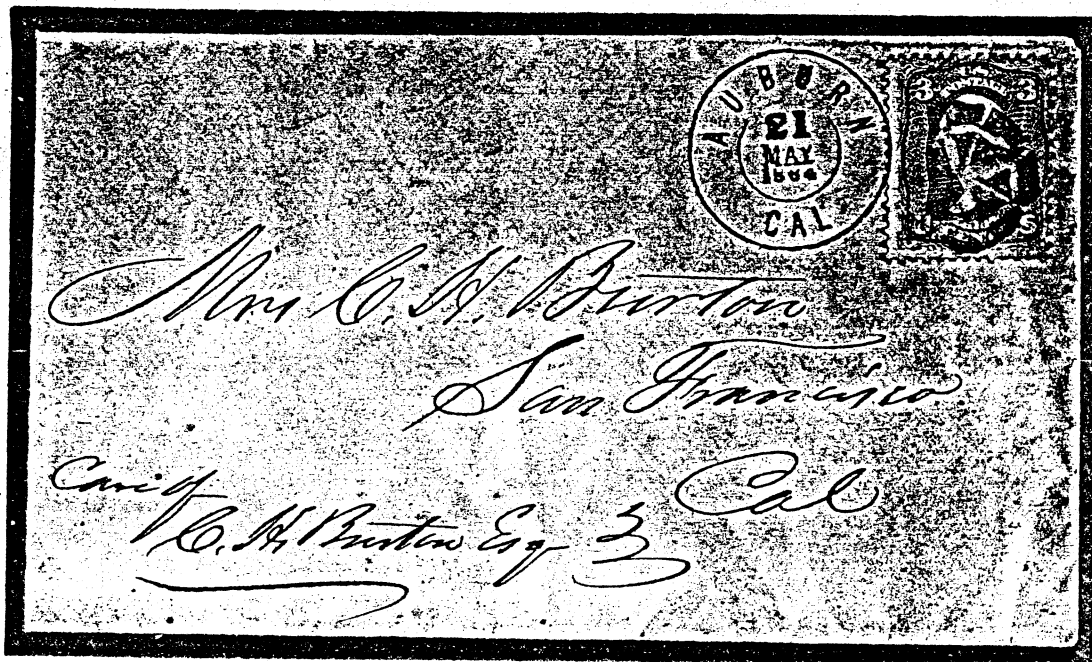 AUBURN
21
MAY
CAL
3 3
Mrs C. H. Burton
San Francisco
Cal
Care of
C. H. Burton Esq